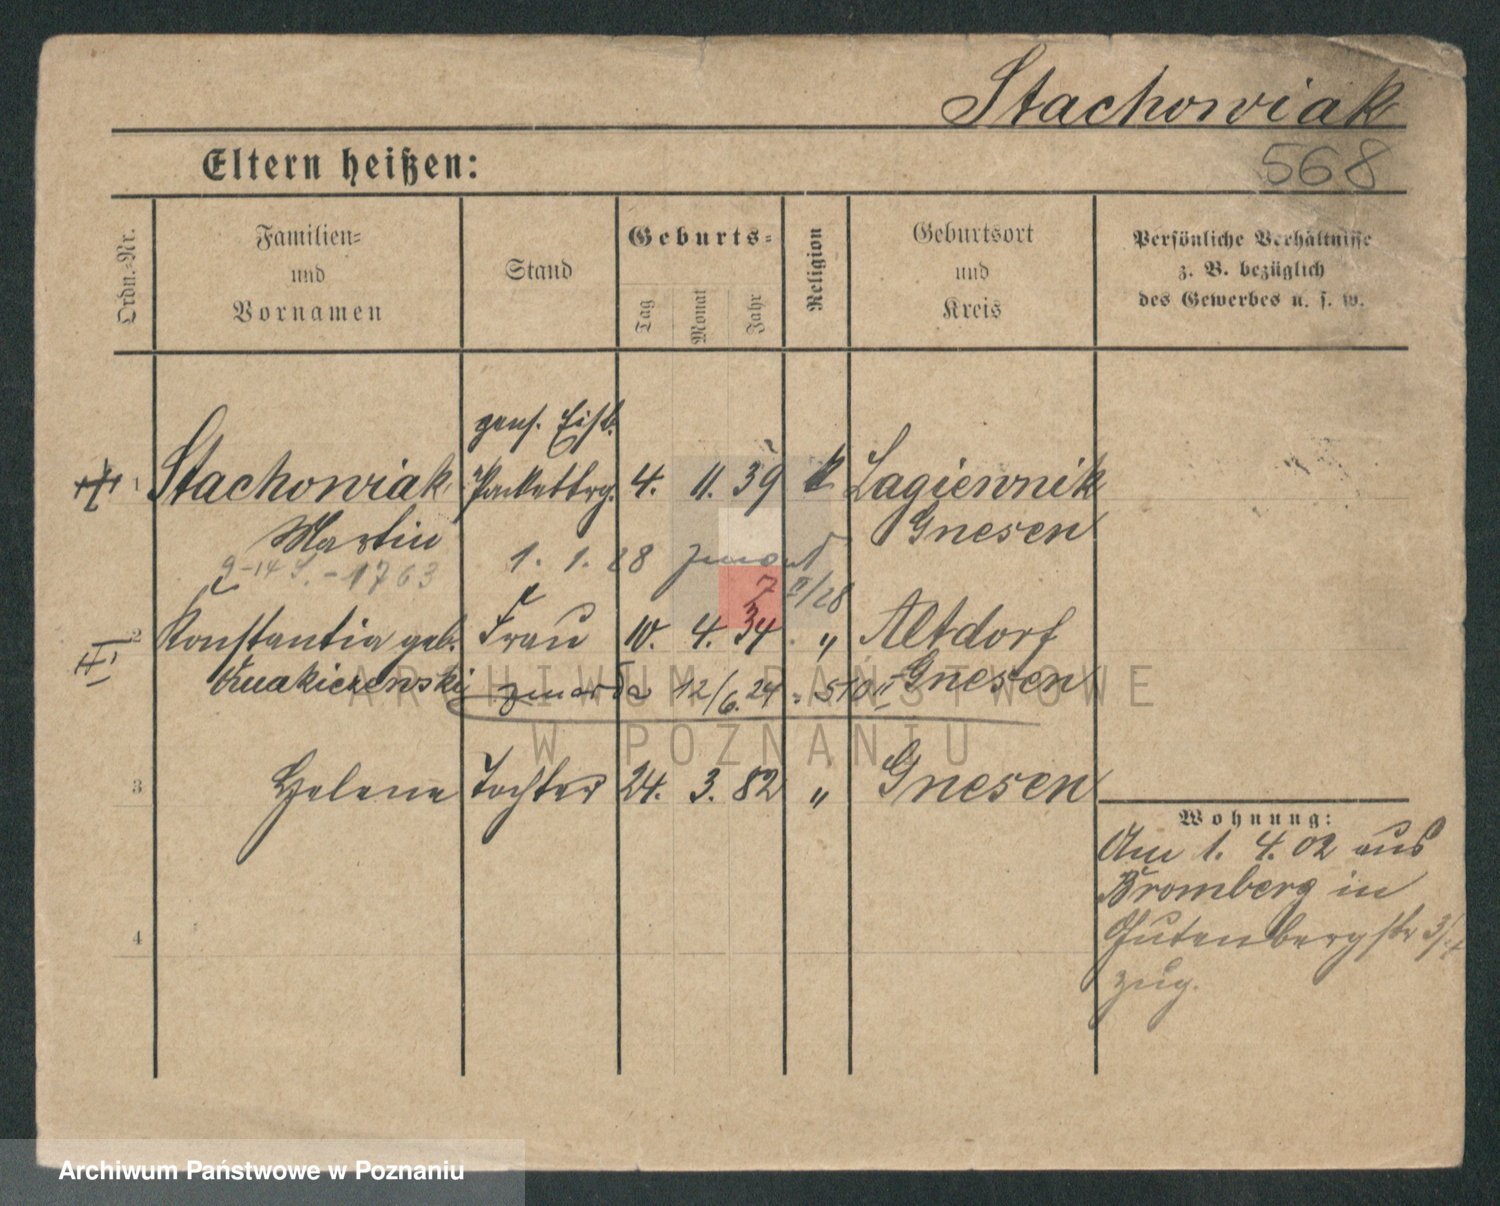 Stachowiak
568
Eltern heißen:
Ordn.-Nr.
Familien- und Vornamen
Stand
Geburts-
Tag Monat Jahr
Religion
Geburtsort und Kreis
Persönliche Verhältnisse z. B. bezüglich des Gewerbes u. s. w.
pens. Eisb.
1 Stachowiak Packettrg. 4. 11. 39 k Lagiewnik
Martin Gnesen
1. 1. 28
9-14 S. - 1763
7 II/28
2 Konstantia geb. Frau 10. 4. 34 " Altdorf
zmarła 12/6. 24 Gnesen
3 Helene Tochter 24. 3. 82 " Gnesen
Wohnung:
Am 1. 4. 02 aus
Bromberg in
Gutenbergstr 3/4
zug.
4
ARCHIWUM PAŃSTWOWE
W POZNANIU
Archiwum Państwowe w Poznaniu